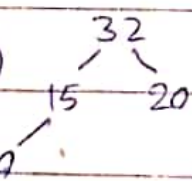 32
15 20